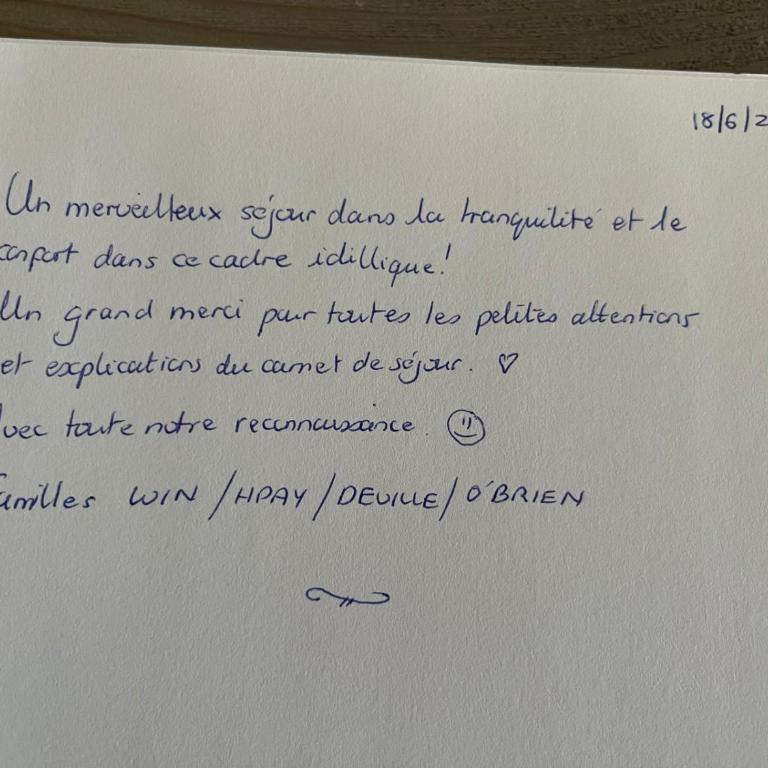 18/6/2
Un merveilleux séjour dans la tranquilité et le
confort dans ce cadre idillique!
Un grand merci pour toutes les petites attentions
et explications du carnet de séjour. ♡
Avec toute notre reconnaissance. ☺
Familles WIN / HPAY / DEVILLE / O'BRIEN